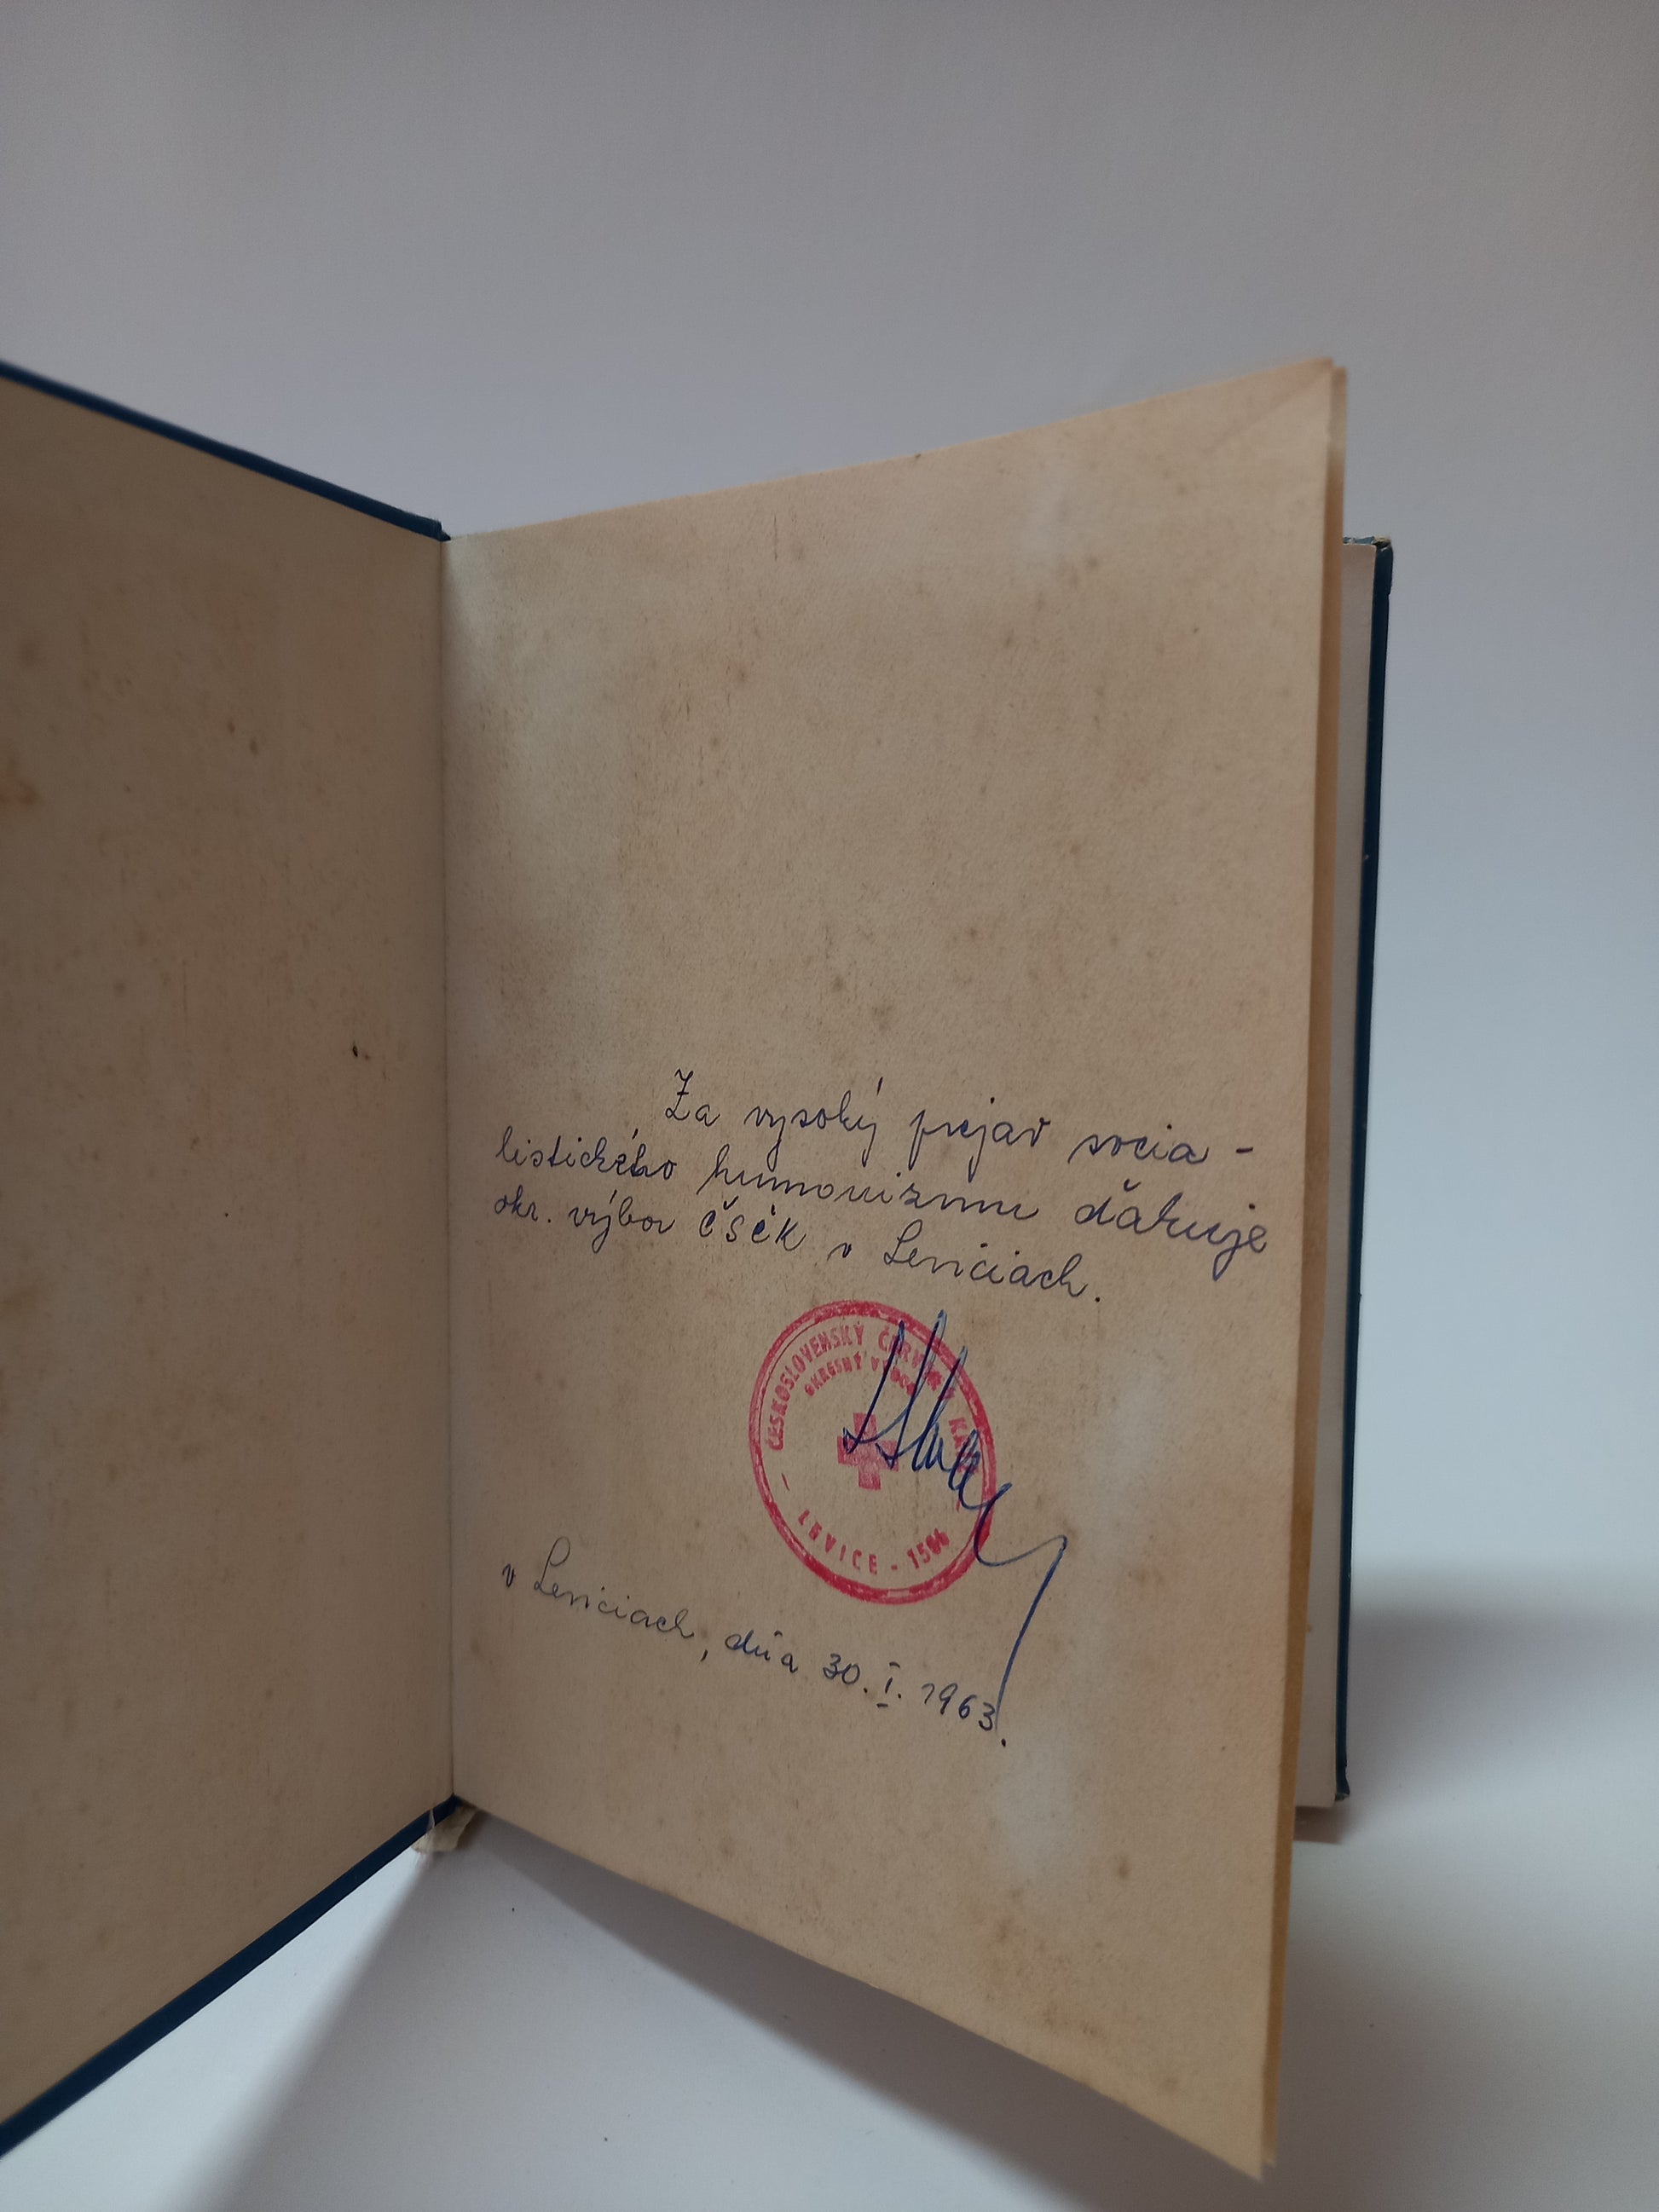 Za vysoký prejav socia-
listického humanizmu ďaruje
okr. výbor ČSČK v Leviciach.
ČESKOSLOVENSKÝ ČERVENÝ KRÍŽ
OKRESNÝ VÝBOR
LEVICE - 1504
v Leviciach, dňa 30. I. 1963.